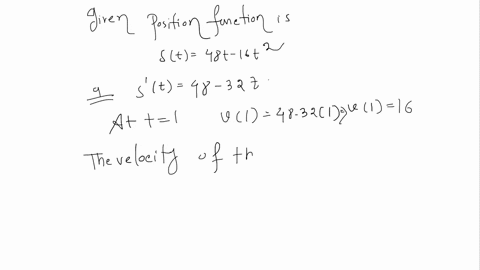 Given Position function is
s(t) = 48t-16t²
a s'(t) = 48-32t
At t=1 v(1) = 48-32(1) ⇒ v(1) = 16
The velocity of th